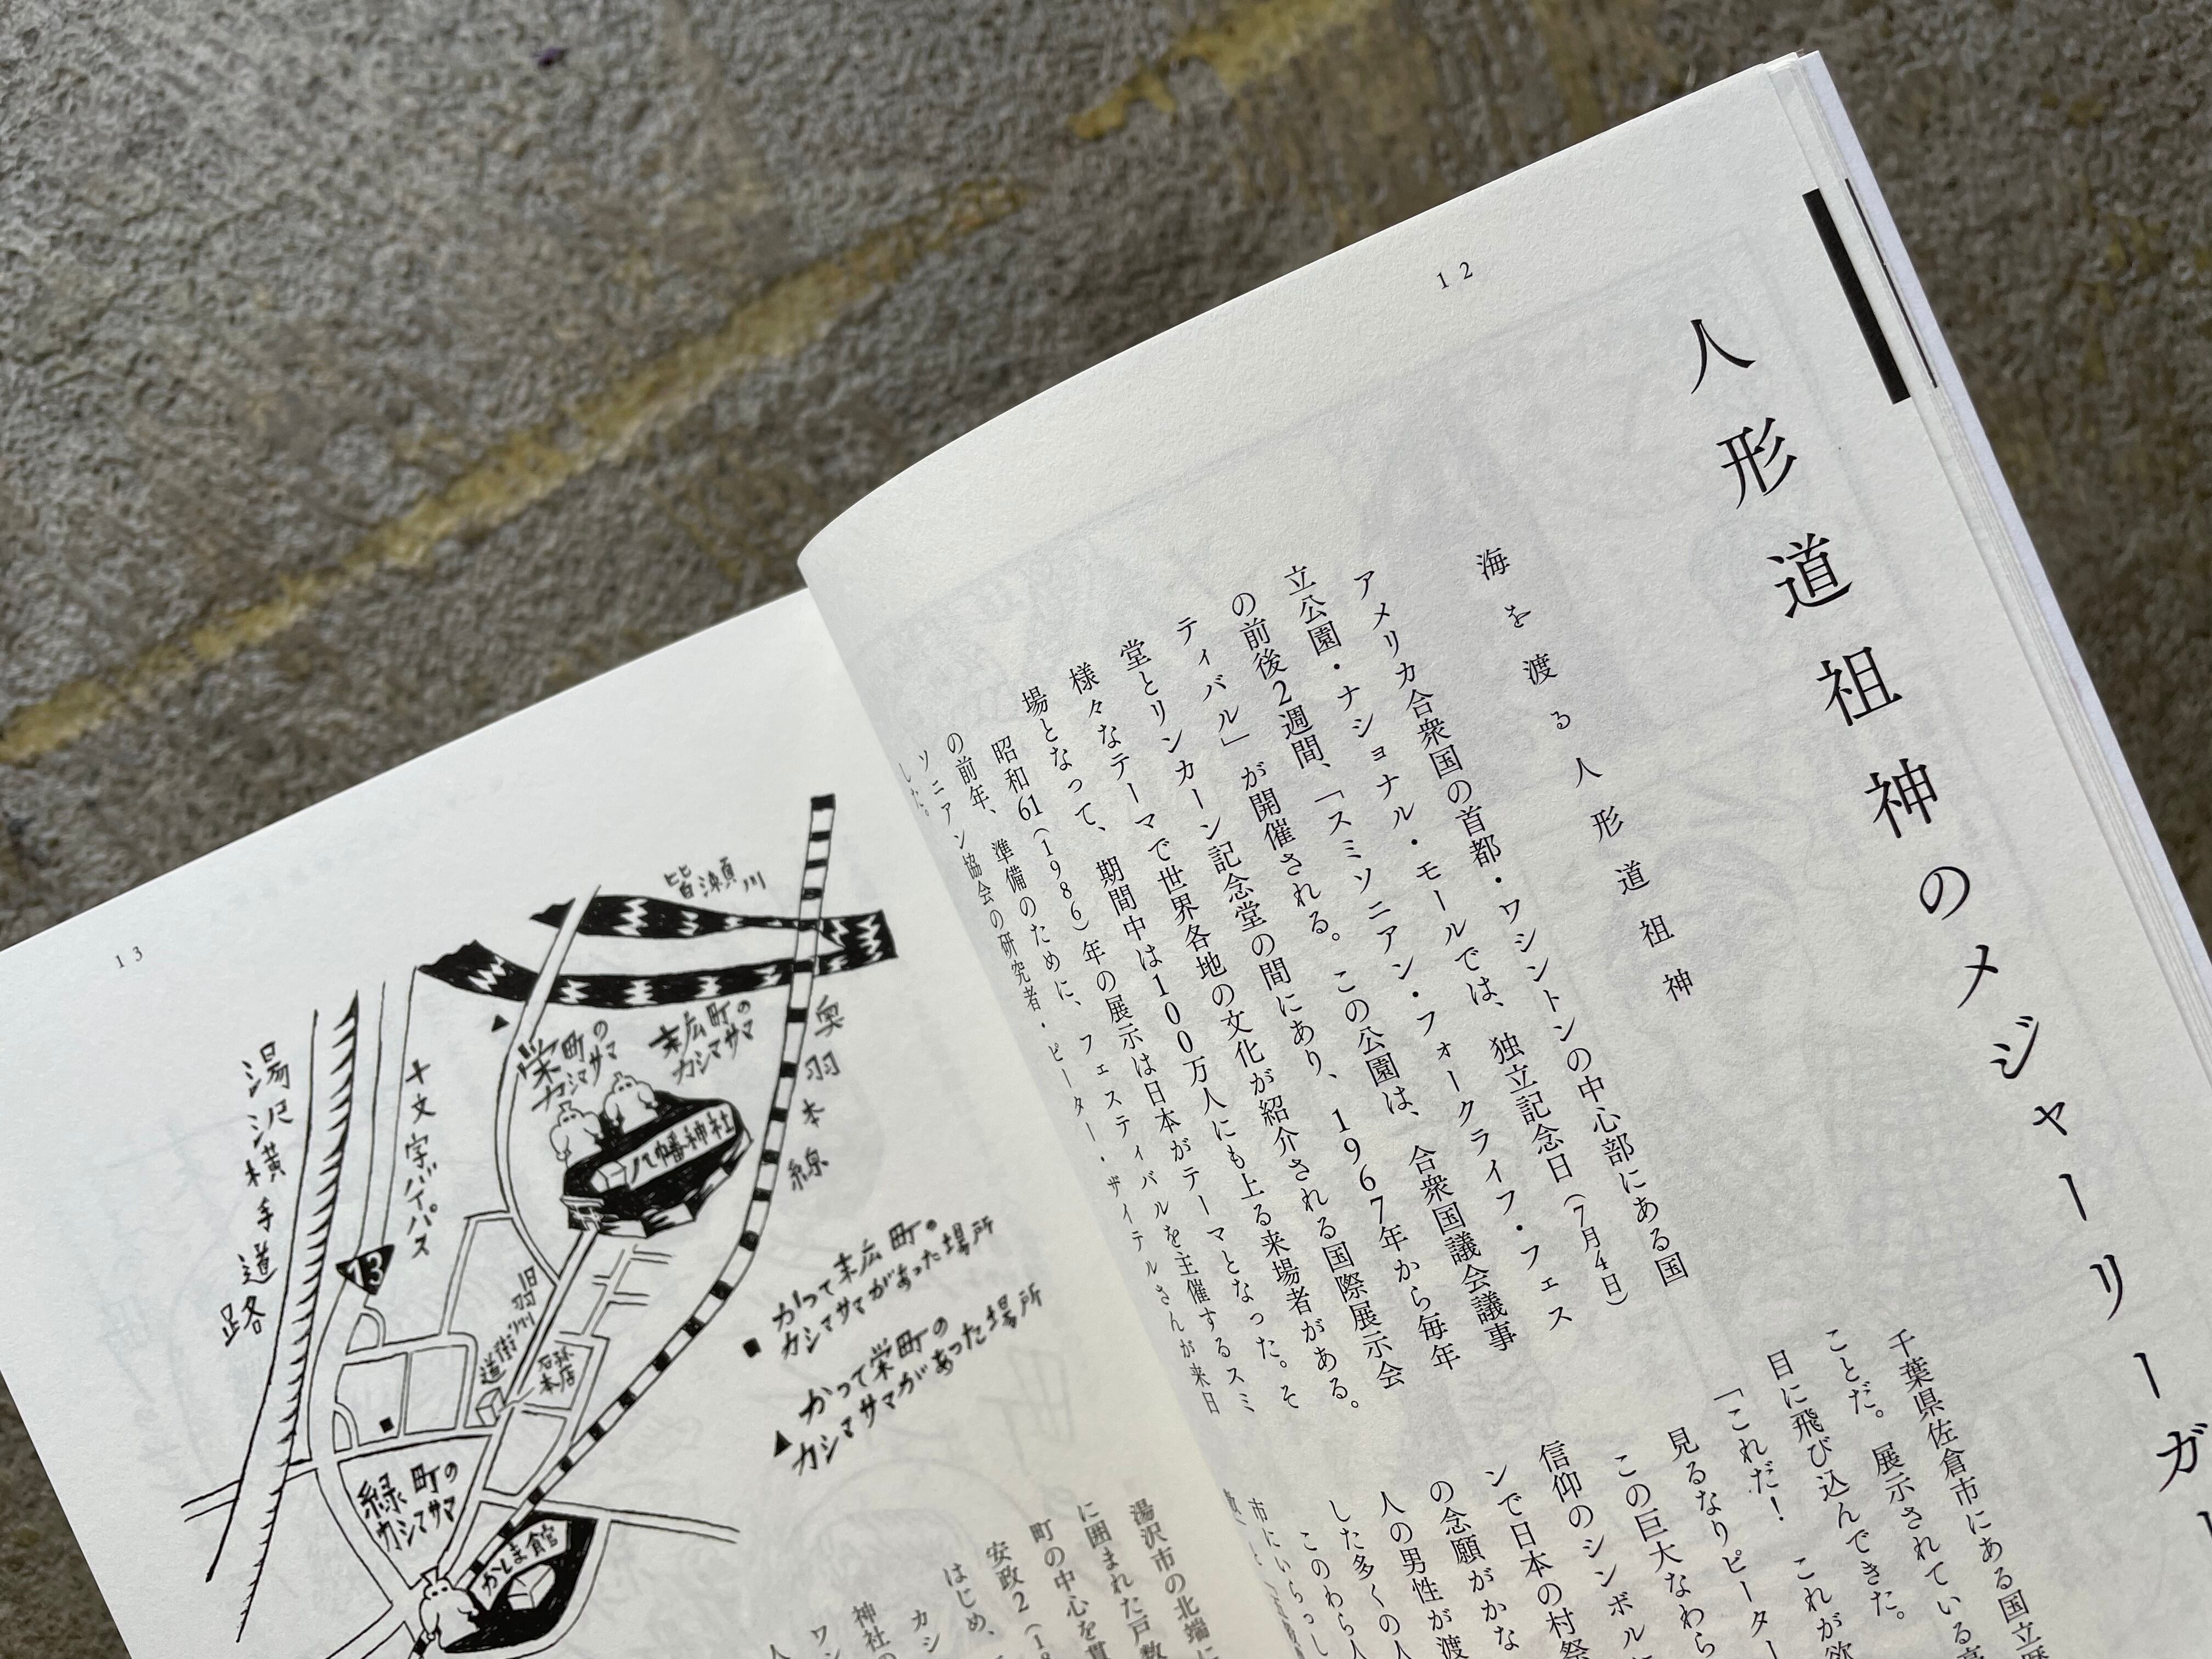 12
人形道祖神のメジャーリーガー
海を渡る人形道祖神
アメリカ合衆国の首都・ワシントンの中心部にある国
立公園・ナショナル・モールでは、独立記念日(7月4日)
の前後2週間、「スミソニアン・フォークライフ・フェス
ティバル」が開催される。この公園は、合衆国議会議事
堂とリンカーン記念堂の間にあり、1967年から毎年
様々なテーマで世界各地の文化が紹介される国際展示会
場となって、期間中は100万人にも上る来場者がある。
昭和61(1986)年の展示は日本がテーマとなった。そ
の前年、準備のために、フェスティバルを主催するスミ
ソニアン協会の研究者・ピーター・ザイテルさんが来日
した。
千葉県佐倉市にある国立歴
ことだ。展示されている高
目に飛び込んできた。
「これだ! これが欲
見るなりピーター
この巨大なわら
信仰のシンボルに
ンで日本の村祭
の念願がかな
人の男性が渡
した多くの人
このわら人
市にいらっし
13
皆瀬川
奥羽本線
末広町のカシマサマ
栄町のカシマサマ
八幡神社
十文字バイパス
湯沢横手道路
13
旧羽州街道
石孫本店
■かつて末広町の
カシマサマがあった場所
▲かつて栄町の
カシマサマがあった場所
緑町の
カシマサマ
かしま館
湯沢市の北端に
に囲まれた戸数
町の中心を貫
安政2(18
はじめ、
カシ
神社の
ワン
人